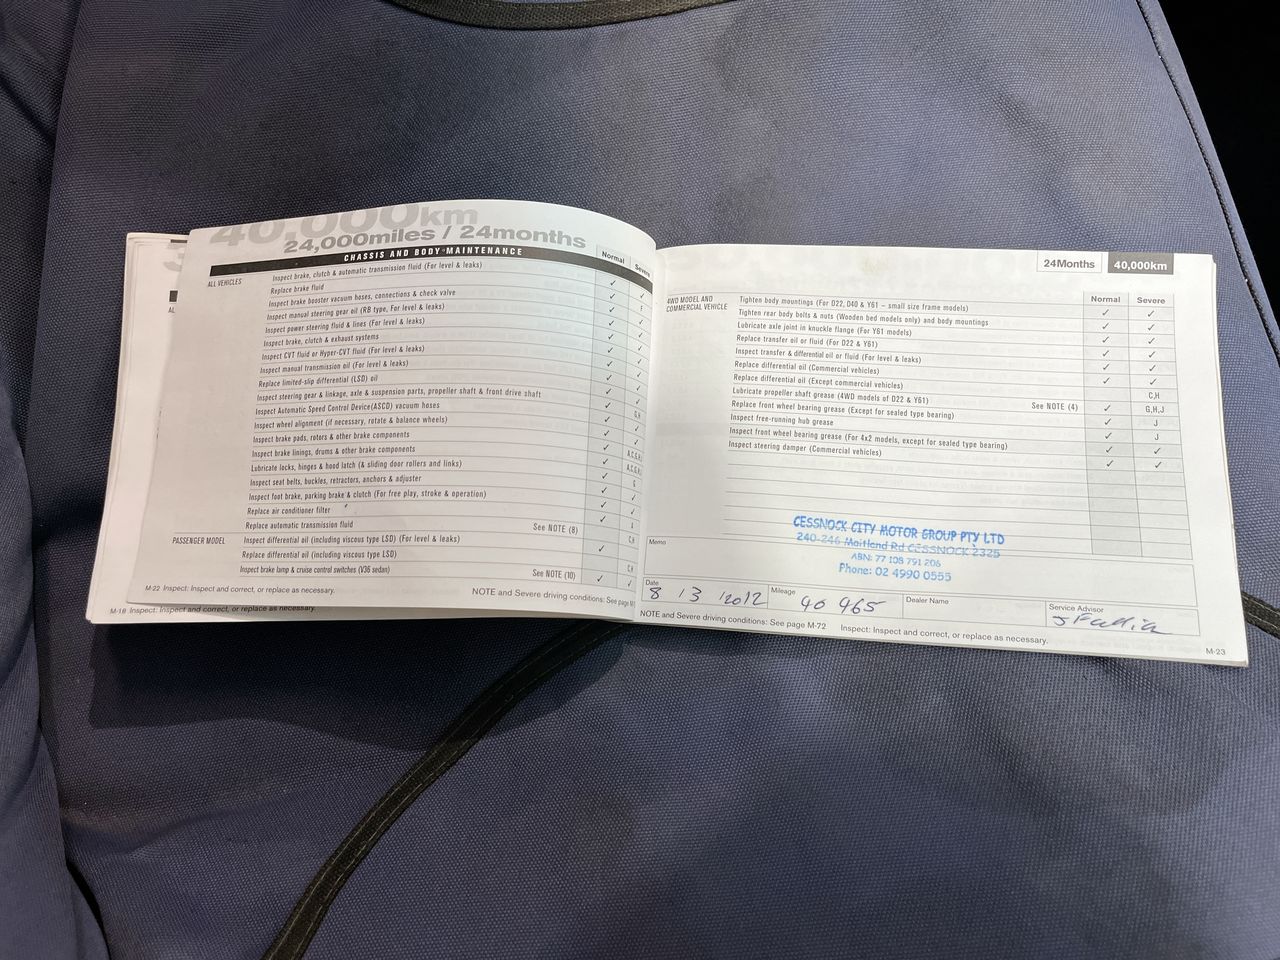 40,000km
24,000miles / 24months
CHASSIS AND BODY MAINTENANCE
Normal
ALL VEHICLES
Inspect brake, clutch & automatic transmission fluid (For level & leaks)
Replace brake fluid
Inspect brake booster vacuum hoses, connections & check valve
Inspect manual steering gear oil (RB type, For level & leaks)
Inspect power steering fluid & lines (For level & leaks)
Inspect brake, clutch & exhaust systems
Inspect CVT fluid or Hyper-CVT fluid (For level & leaks)
Inspect manual transmission oil (For level & leaks)
Replace limited-slip differential (LSD) oil
Inspect steering gear & linkage, axle & suspension parts, propeller shaft & front drive shaft
Inspect Automatic Speed Control Device(ASCD) vacuum hoses
Inspect wheel alignment (if necessary, rotate & balance wheels)
Inspect brake pads, rotors & other brake components
Inspect brake linings, drums & other brake components
Lubricate locks, hinges & hood latch (& sliding door rollers and links)
Inspect seat belts, buckles, retractors, anchors & adjuster
Inspect foot brake, parking brake & clutch (For free play, stroke & operation)
Replace air conditioner filter
Replace automatic transmission fluid See NOTE (8)
PASSENGER MODEL Inspect differential oil (including viscous type LSD) (For level & leaks)
Replace differential oil (including viscous type LSD)
Inspect brake lamp & cruise control switches (V36 sedan) See NOTE (10)
M-22 Inspect: Inspect and correct, or replace as necessary.
NOTE and Severe driving conditions: See page
M-18 Inspect: Inspect and correct, or replace as necessary.
24Months 40,000km
Normal Severe
4WD MODEL AND
COMMERCIAL VEHICLE
Tighten body mountings (For D22, D40 & Y61 – small size frame models)
Tighten rear body bolts & nuts (Wooden bed models only) and body mountings
Lubricate axle joint in knuckle flange (For Y61 models)
Replace transfer oil or fluid (For D22 & Y61)
Inspect transfer & differential oil or fluid (For level & leaks)
Replace differential oil (Commercial vehicles)
Replace differential oil (Except commercial vehicles)
Lubricate propeller shaft grease (4WD models of D22 & Y61) See NOTE (4)
Replace front wheel bearing grease (Except for sealed type bearing)
Inspect free-running hub grease
Inspect front wheel bearing grease (For 4x2 models, except for sealed type bearing)
Inspect steering damper (Commercial vehicles)
C,H
G,H,J
J
J
CESSNOCK CITY MOTOR GROUP PTY LTD
240-246 Maitland Rd CESSNOCK 2325
ABN: 77 108 791 206
Phone: 02 4990 0555
Memo
Date 8 / 3 / 2012 Mileage 40 965 Dealer Name Service Advisor
NOTE and Severe driving conditions: See page M-72 Inspect: Inspect and correct, or replace as necessary.
M-23